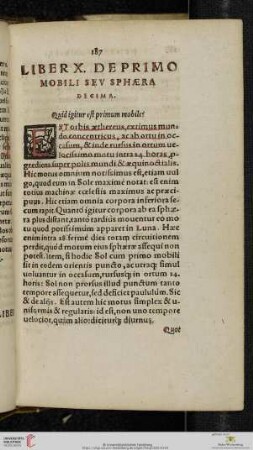 187
LIBER X. DE PRIMO
MOBILI SEV SPHÆRA
DECIMA.
Quid igitur est primum mobile?
EST orbis æthereus, extimus mun
do concentricus, ac ab ortu in oc
casum, & inde rursus in ortum ue
locissimo motu intra 24. horas,
grediens super polis mundi & æquinoctialis.
Hic motus omnium notissimus est, etiam uul
go, quod eum in Sole maxime notat: est enim
totius machinæ cœlestis maximus ac præci
puus. Hic etiam omnia corpora inferiora se
cum rapit. Quanto igitur corpora ab ea sphæ
ra plus distant, tanto tardius mouentur eo mo
tu quod potissimum apparet in Luna. Hæc
enim intra 28 ferme dies totam circuitionem
perdit, quod motum eius sphæræ assequi non
potest. Item, si hodie Sol cum primo mobili
sit in eodem orientis puncto, ac utraque simul
uoluantur in occasum, rursusque in ortum 24.
horis: Sol non prorsus illud punctum tanto
tempore assequetur, sed deficiet paululum. Sic
& de alijs. Est autem hic motus simplex & u-
niformis & regularis: id est, non uno tempore
uelocior, quàm alio: diciturque diurnus.
Quot